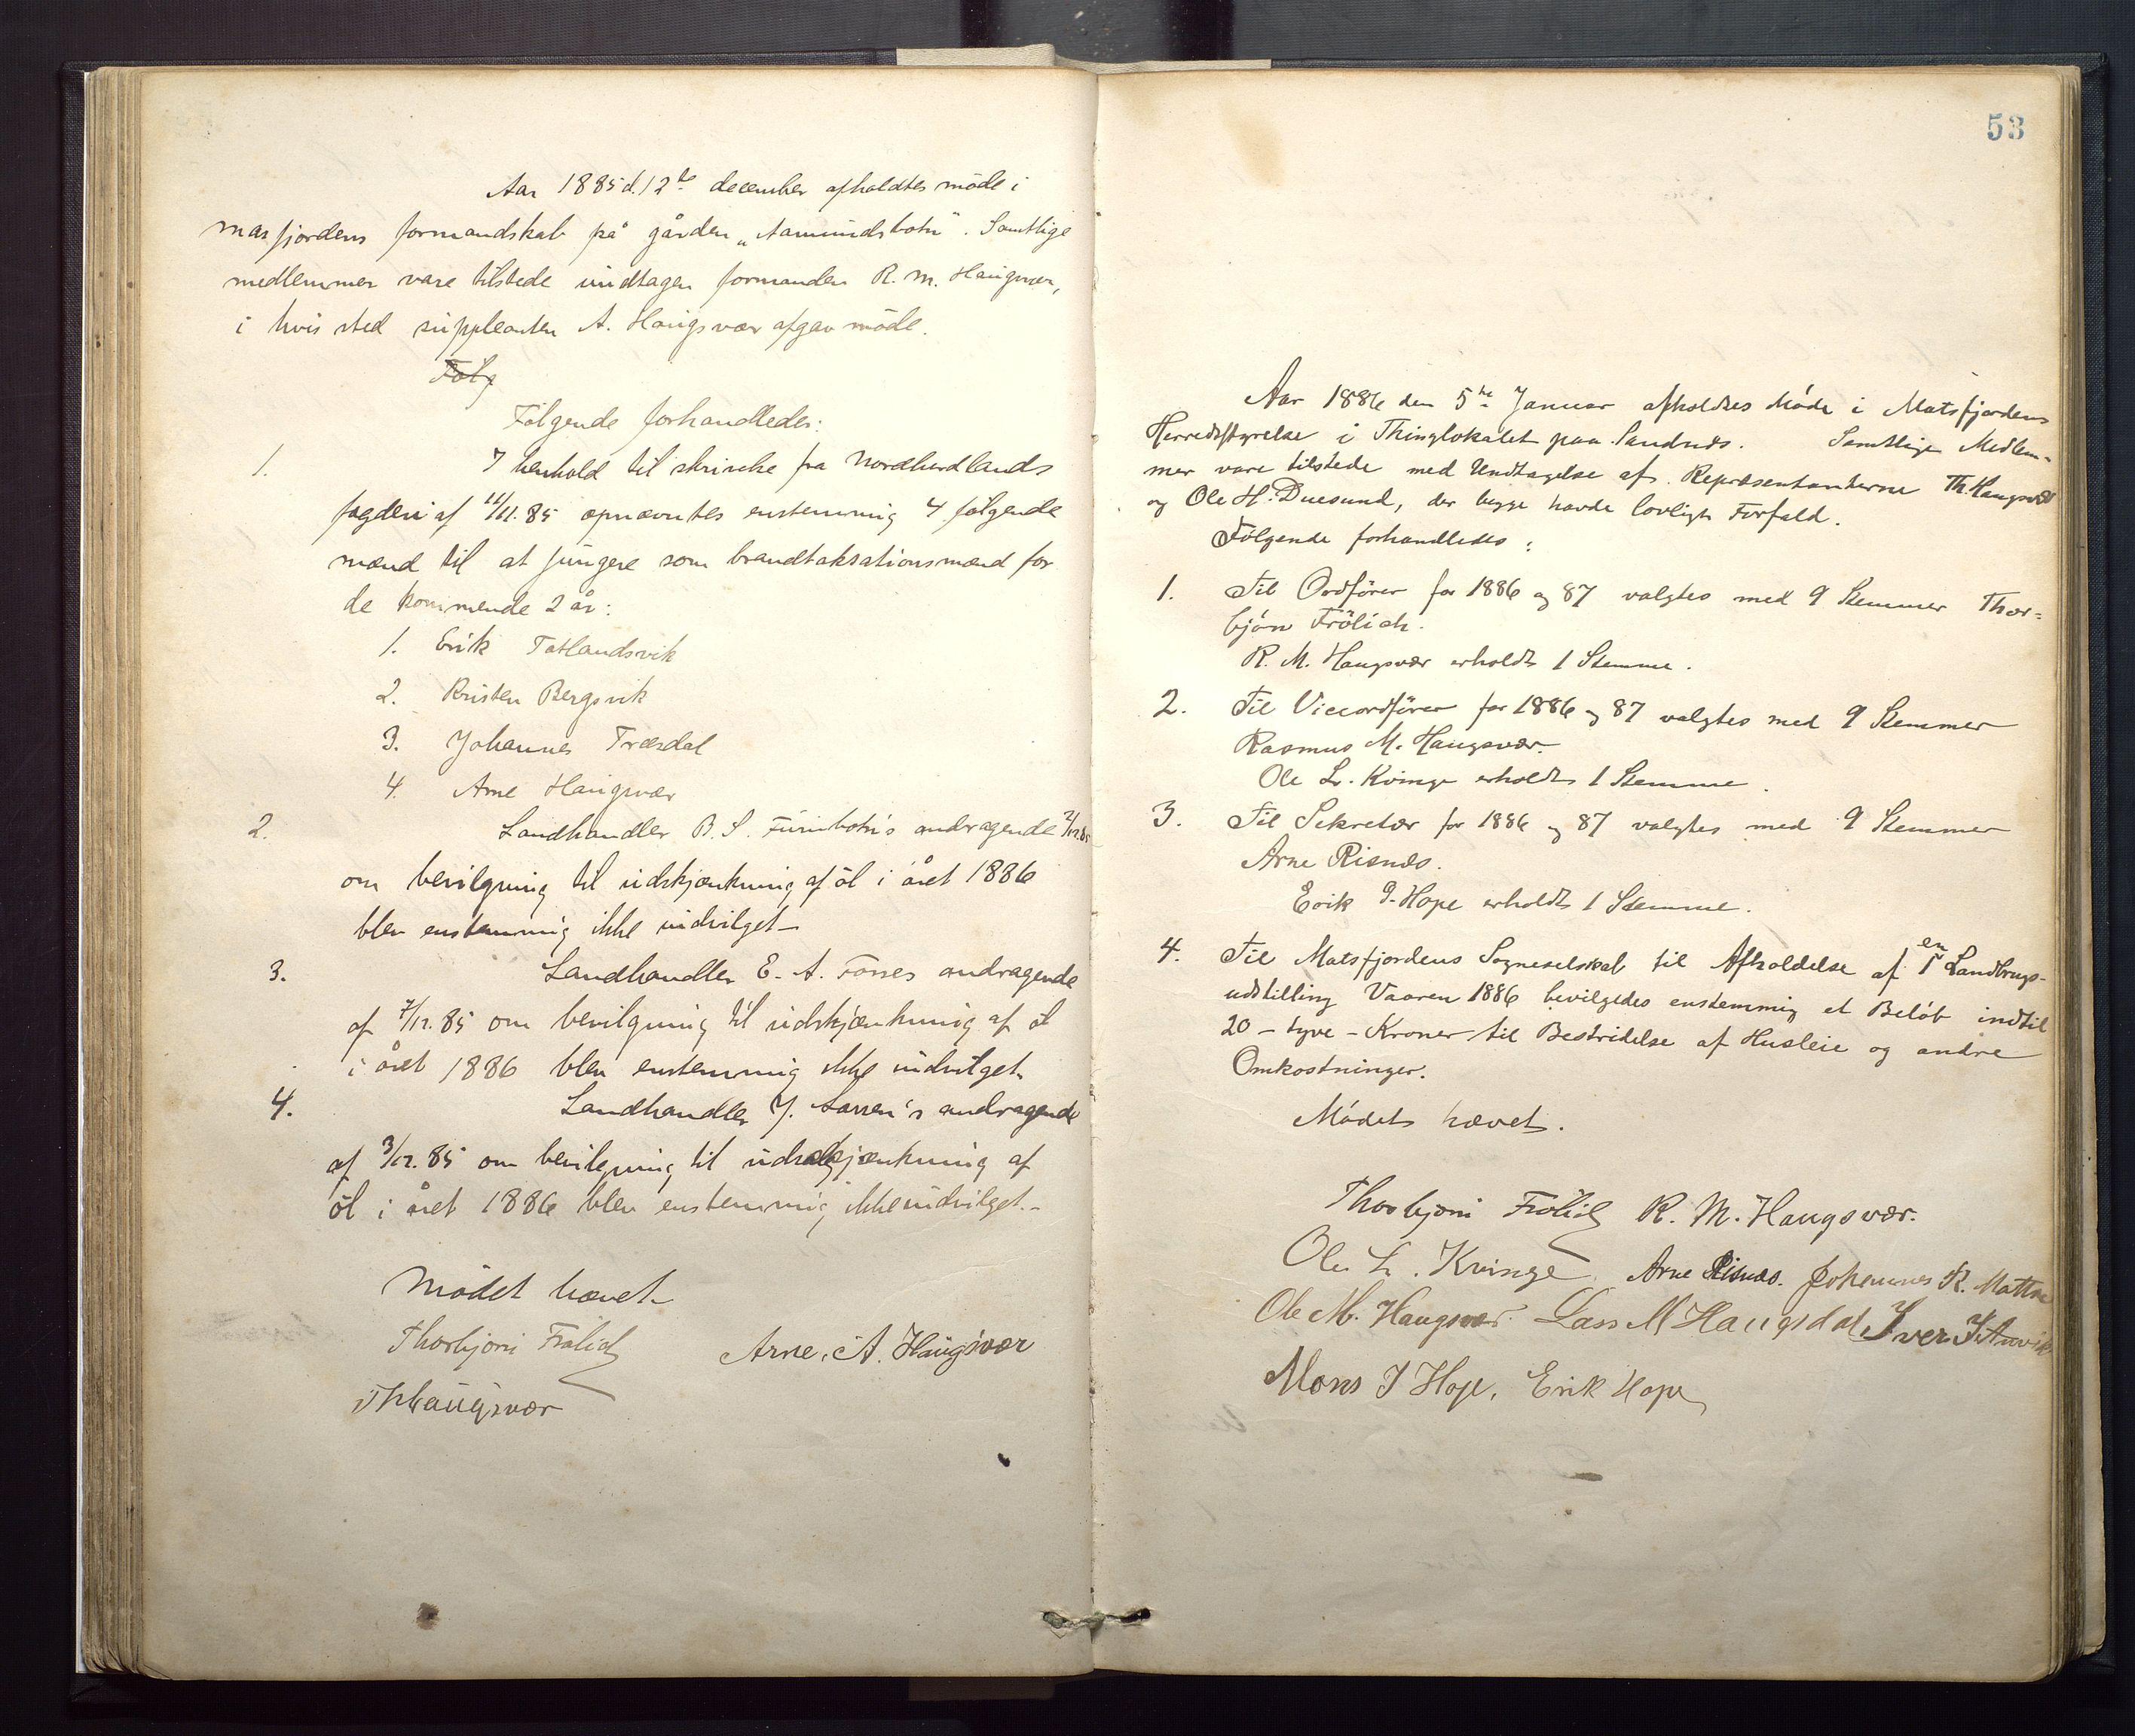 Aar 1885 d. 12te december afholdtes möde i
masfjordens formandskab på gården „Aamundsbotn". Samtlige
medlemmer vare tilstede undtagen formanden R. M. Haugsvær,
i hvis sted suppleanten A. Haugsvær afgav möde.
Følg
Følgende forhandledes:
1. I henhold til skrivelse fra Nordhordlands
fogderi af 11/11.85 opnævntes enstemmig 4 følgende
mænd til at fungere som brandtaksationsmænd for
de kommende 2 år:
1. Erik Totlandsvik
2. Kristen Bergsvik
3. Johannes Træsdal
4. Arne Haugsvær
2. Landhandler B. S. Furubotn's andragende 2/12.85
om bevilgning til udskjænkning af öl i året 1886
blev enstemmig ikke indvilget
3. Landhandler E. A. Fosses andragende
af 7/12.85 om bevilgning til udskjænkning af öl
i året 1886 blev enstemmig ikke indvilget.
4. Landhandler J. Aasen's andragende
af 3/12.85 om bevilgning til udskjænkning af
öl i året 1886 blev enstemmig ikke indvilget.
Mödet hævet
Thorbjørn Frölich Arne. A. Haugsvær
Th Haugsvær
53
Aar 1886 den 5te Januar afholdtes Möde i Matsfjordens
Herredsstyrelse i Thinglokalet paa Sandnes. Samtlige Medlem-
mer vare tilstede med Undtagelse af Repræsentanterne Th. Haugsvær
og Ole H. Duesund, der begge havde lovligt Forfald.
Følgende forhandledes:
1. Til Ordförer for 1886 og 87 valgtes med 9 Stemmer Thor=
björn Frölich.
R. M. Haugsvær erholdt 1 Stemme.
2. Til Viceordförer for 1886 og 87 valgtes med 9 Stemmer
Rasmus M. Haugsvær.
Ole L. Kvinge erholdt 1 Stemme.
3. Til Sekretær for 1886 og 87 valgtes med 9 Stemmer
Arne Risnes.
Erik J. Hope erholdt 1 Stemme.
4. Til Matsfjordens Sogneselskab til Afholdelse af en Landbrugs-
udstilling Vaaren 1886 bevilgedes enstemmig et Belöb indtil
20 – tyve – Kroner til Bestridelse af Husleie og andre
Omkostninger.
Mödet hævet.
Thorbjørn Frölich R. M. Haugsvær.
Ole L. Kvinge Arne Risnes. Johannes R. Mattre
Ole M. Haugsvær. Lars M Haugsdal Iver
Mons J Hope, Erik Hope